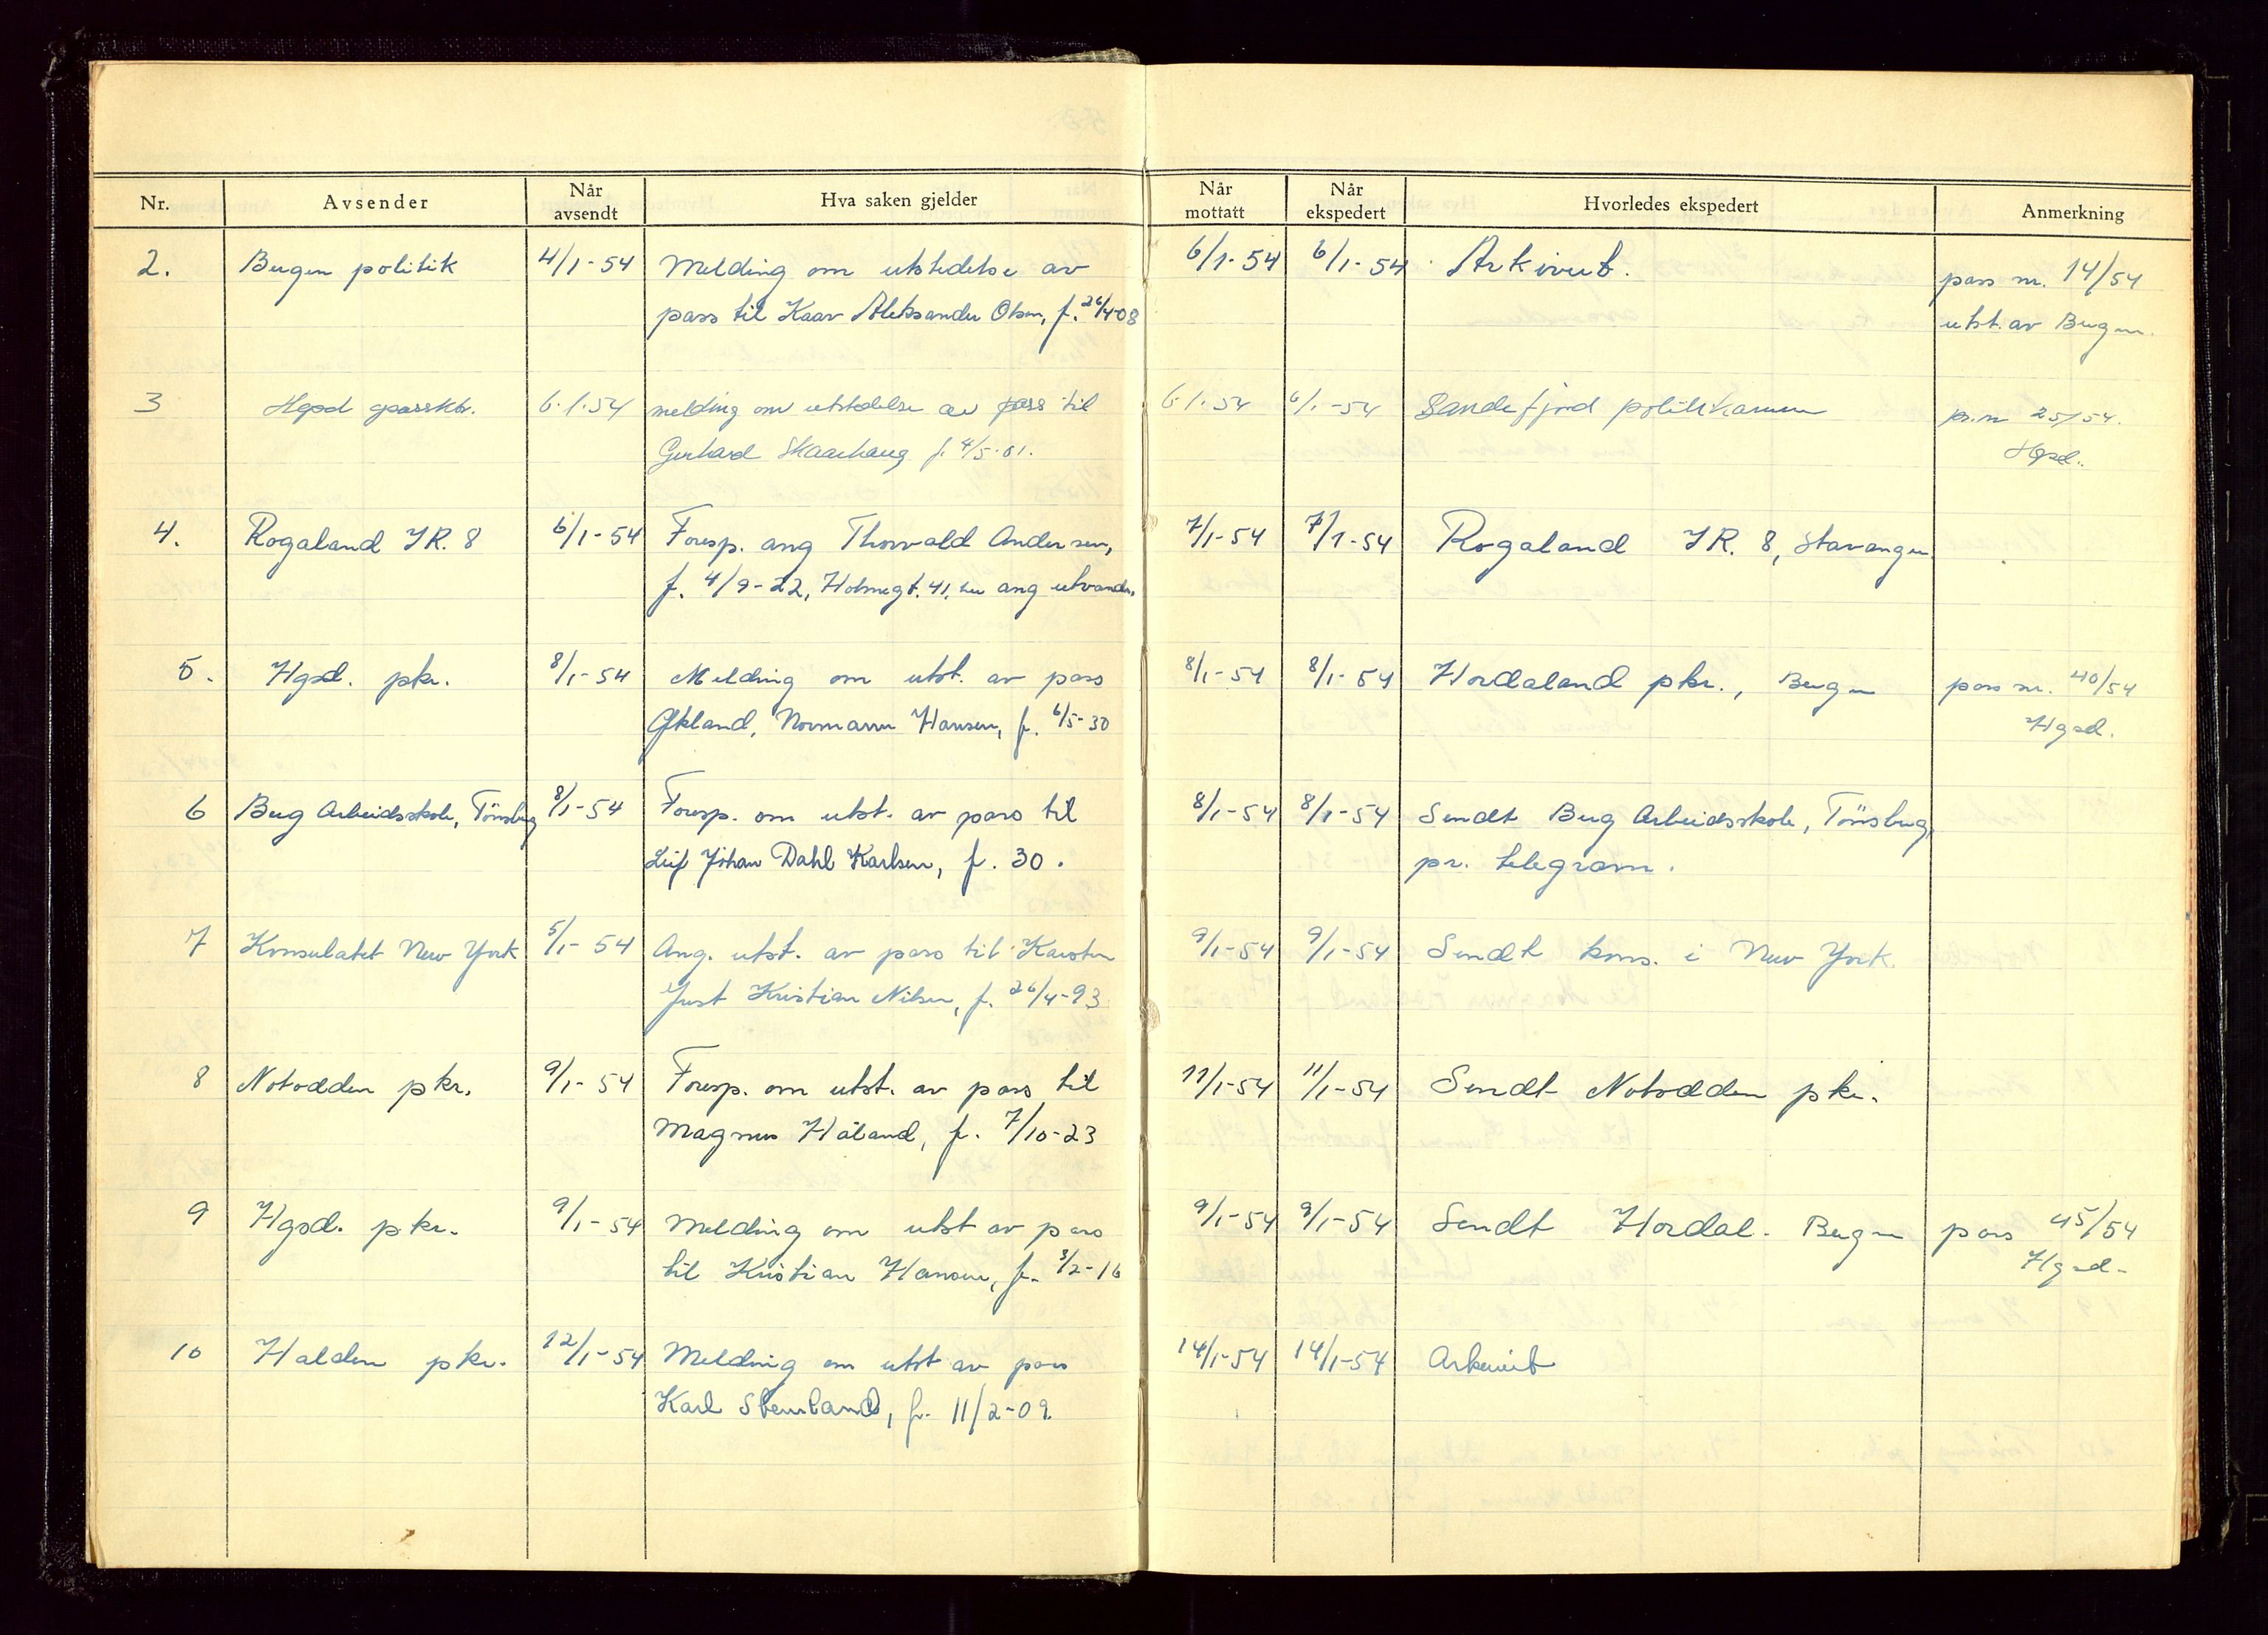 Nr. Avsender Når avsendt Hva saken gjelder Når mottatt Når ekspedert Hvorledes ekspedert Anmerkning
2. Bergen politik 4/1-54 Melding om utstedelse av 6/1-54 6/1-54 Arkivert. pass nr. 14/54
pass til Kaar Aleksander Olsen, f. 26/4-08 utst. av Bergen.
3 Hgsd passktr. 6.1.54 melding om utstedelse av pass til 6.1.54 6/1-54 Sandefjord politikammer p.nr 25/54.
Gerhard Skaarhaug f. 4/5-01. Hgsd.
4. Rogaland IR. 8 6/1-54 Foresp. ang Thorvald Andersen, 7/1-54 7/1-54 Rogaland IR. 8, Stavanger
f. 4/9-22, Holmegt. 41, her ang utvandr.
5. Hgsd. pkr. 8/1-54 Melding om utst. av pass 8/1-54 8/1-54 Hordaland pkr., Bergen pass nr. 40/54
Normann Hansen, f. 6/5-30 Hgsd.
6 Berg Arbeidsskole, Tönsberg 8/1-54 Foresp. om utst. av pass til 8/1-54 8/1-54 Sendt Berg Arbeidsskole, Tönsberg,
Leif Johan Dahl Karlsen, f. 30. pr. telegram.
7 Konsulatet New York 5/1-54 Ang. utst. av pass til Karsten 9/1-54 9/1-54 Sendt kons. i New York.
Just Kristian Nilsen, f. 26/4-93
8 Notodden pkr. 9/1-54 Foresp. om utst. av pass til 11/1-54 11/1-54 Sendt Notodden pkr.
Magnus Håland, f. 7/10-23
9 Hgsd. pkr. 9/1-54 Melding om utst av pass 9/1-54 9/1-54 Sendt Hordal. Bergen pass 45/54
til Kristian Hansen, f. 3/2-16 Hgsd.
10 Halden pkr. 12/1-54 Melding om utst av pass 14/1-54 14/1-54 Arkivert
Karl Stenland, f. 11/2-09.